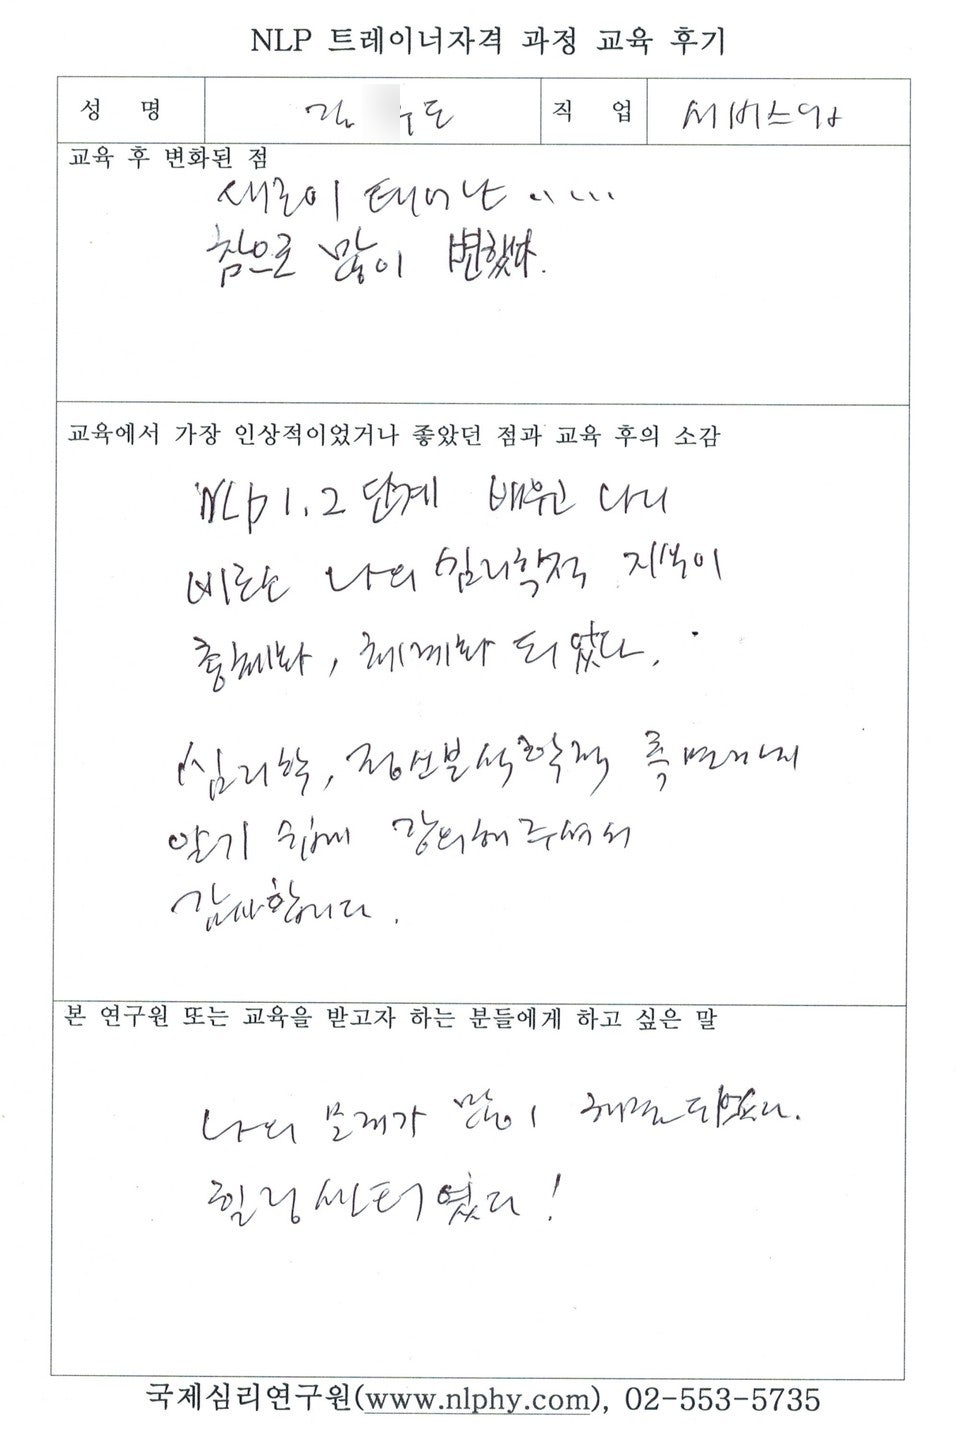 NLP 트레이너자격 과정 교육 후기
성 명 김 도 직 업 서비스업
교육 후 변화된 점
새로이 태어난 ......
참으로 많이 변했다.
교육에서 가장 인상적이었거나 좋았던 점과 교육 후의 소감
NLP 1.2 단계 배우고 나니
비로소 나의 심리학적 지식이
총체화, 체계화 되었다.
심리학, 정신분석학적 측면까지
알기 쉽게 강의해주셔서
감사합니다.
본 연구원 또는 교육을 받고자 하는 분들에게 하고 싶은 말
나의 문제가 많이 해결되었다.
힐링센터였다!
국제심리연구원(www.nlphy.com), 02-553-5735